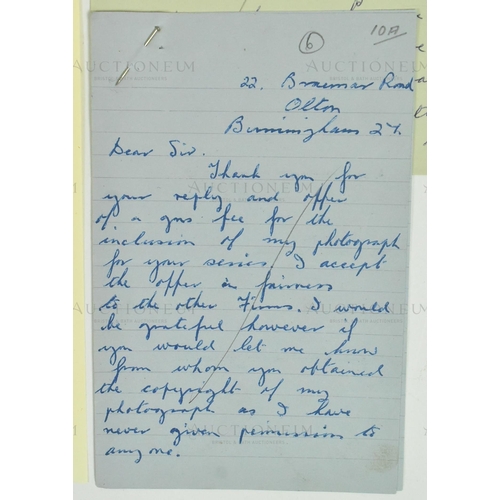 6
10A
22. Braemar Road
Olton
Birmingham 27.
Dear Sir.
Thank you for
your reply and offer
of a gns fee for the
inclusion of my photograph
for your series. I accept
the offer in fairness
to the other Firms. I would
be grateful however if
you would let me know
from whom you obtained
the copyright of my
photograph as I have
never given permission to
anyone.
AUCTIONEUM